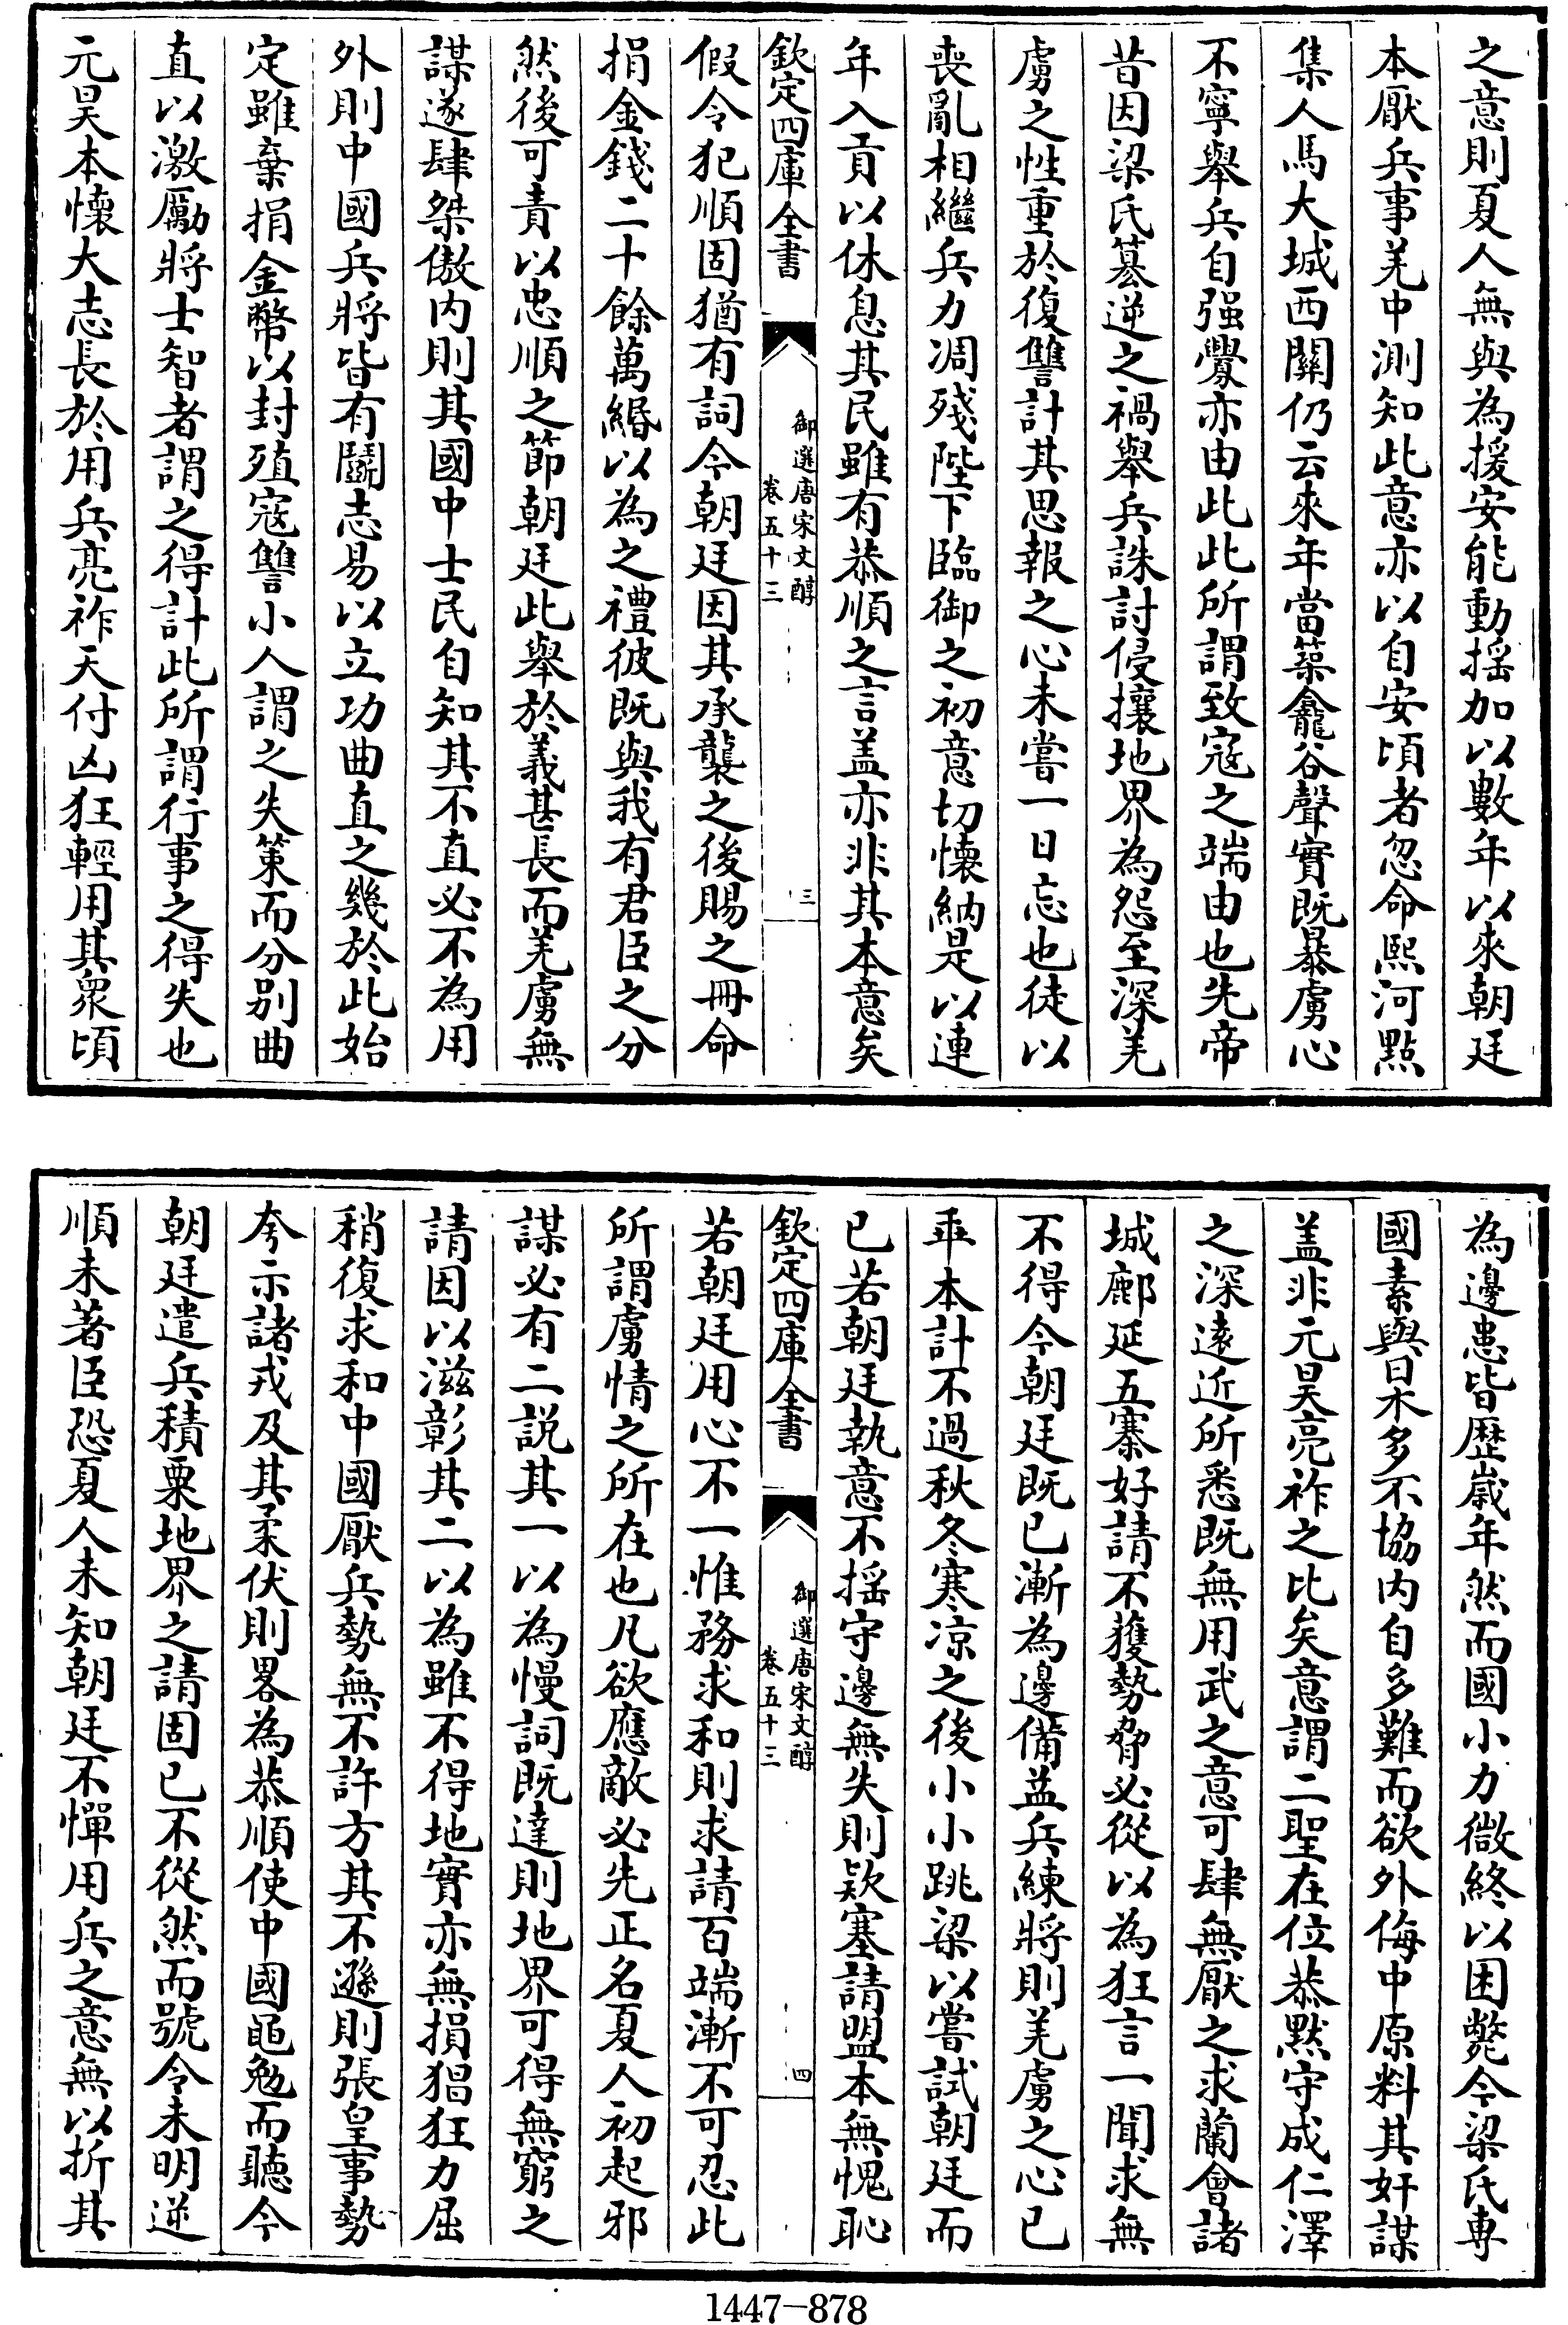 之意則夏人無與為援安能動揺加以數年以來朝廷
本厭兵事羌中測知此意亦以自安頃者忽命熙河點
集人馬大城西關仍云來年當築龕谷聲實既暴虜心
不寧舉兵自强釁亦由此此所謂致宼之端由也先帝
昔因梁氏簒逆之禍舉兵誅討侵攘地界為怨至深羌
虜之性重於復讐計其思報之心未嘗一日忘也徒以
喪亂相繼兵力凋殘陛下臨御之初意切懷納是以連
年入貢以休息其民雖有恭順之言盖亦非其本意矣
欽定四庫全書
御選唐宋文醇
卷五十三
三
假令犯順固猶有詞今朝廷因其承襲之後賜之冊命
捐金錢二十餘萬緡以為之禮彼既與我有君臣之分
然後可責以忠順之節朝廷此舉於義甚長而羌虜無
謀遂肆桀傲内則其國中士民自知其不直必不為用
外則中國兵將皆有鬭志易以立功曲直之幾於此始
定雖棄捐金幣以封殖宼讐小人謂之失策而分别曲
直以激厲將士智者謂之得計此所謂行事之得失也
元昊本懷大志長於用兵亮祚天付凶狂輕用其衆頃
為邊患皆歴歳年然而國小力微終以困斃今梁氏専
國素與㒲多不協内自多難而欲外侮中原料其奸謀
盖非元昊亮祚之比矣意謂二聖在位恭默守成仁澤
之深逺近所悉既無用武之意可肆無厭之求蘭會諸
城鄜延五寨好請不獲勢脅必從以為狂言一聞求無
不得今朝廷既已漸為邊備益兵練將則羌虜之心已
乖本計不過秋冬寒凉之後小小跳梁以嘗試朝廷而
已若朝廷執意不揺守邊無失則欵塞請盟本無愧恥
欽定四庫全書
御選唐宋文醇
卷五十三
四
若朝廷用心不一惟務求和則求請百端漸不可忍此
所謂虜情之所在也凡欲應敵必先正名夏人初起邪
謀必有二説其一以為慢詞既達則地界可得無窮之
請因以滋彰其二以為雖不得地實亦無損猖狂力屈
稍復求和中國厭兵勢無不許方其不遜則張皇事勢
夸示諸戎及其柔伏則畧為恭順使中國黽勉而聽今
朝廷遣兵積粟地界之請固已不從然而號令未明逆
順未著臣恐夏人未知朝廷不憚用兵之意無以折其
1447-878